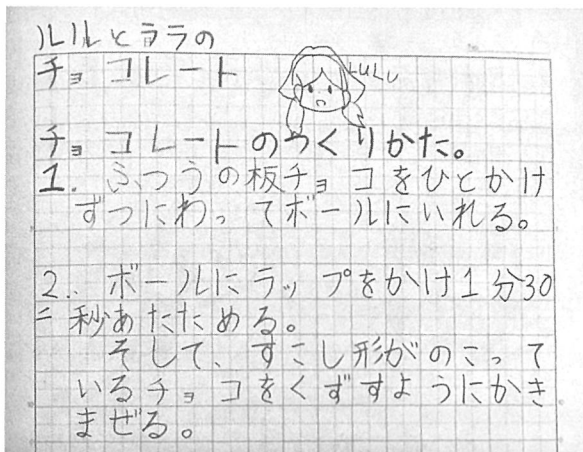 ルルとララの
チョコレート
LULU
チョコレートのつくりかた。
1. ふつうの板チョコをひとかけ
ずつにわってボールにいれる。
2. ボールにラップをかけ1分30
秒あたためる。
そして、すこし形がのこって
いるチョコをくずすようにかき
まぜる。